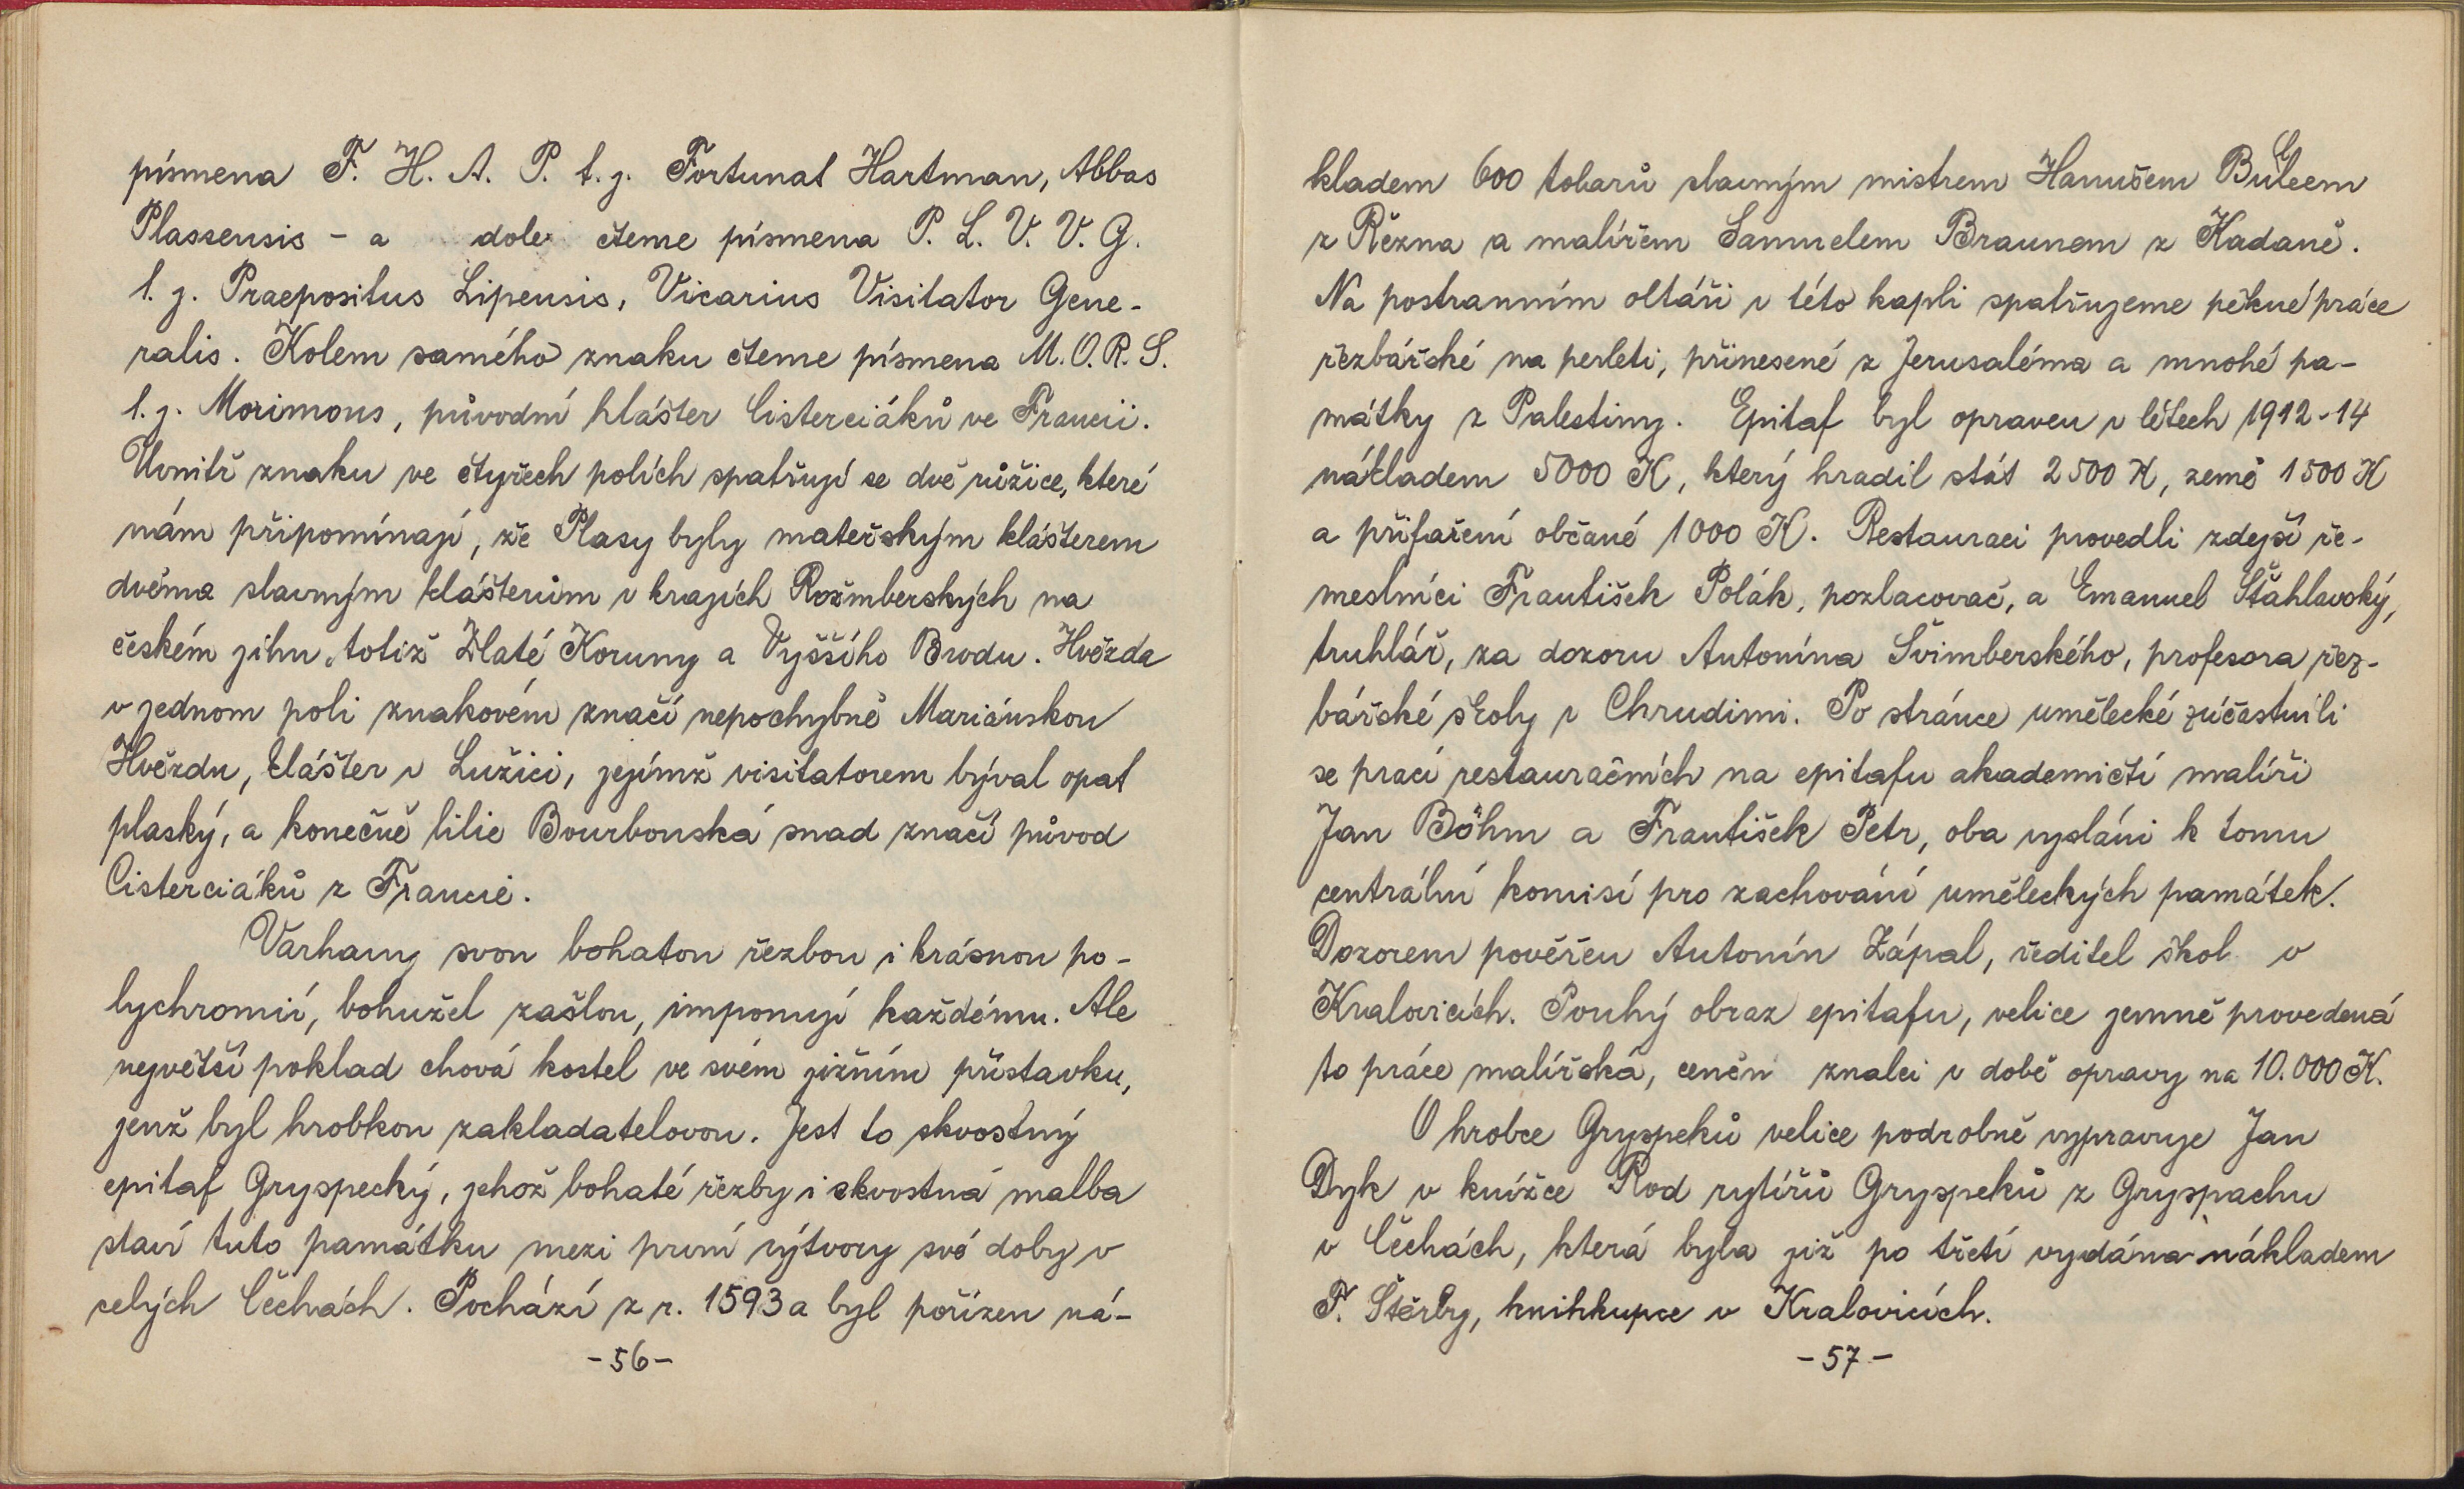 písmena F. H. A. P. t. j. Fortunat Hartman, Abbas
Plassensis - a dole čteme písmena P. L. V. V. G.
t. j. Praepositus Lipensis, Vicarius Visitator Gene-
ralis. Kolem samého znaku čteme písmena M. O. R. S.
t. j. Morimons, původní klášter Cisterciáků ve Francii.
Uvnitř znaku ve čtyřech polích spatřují se dvě růžice, které
nám připomínají, že Plasy byly mateřským klášterem
dvěma slavným klášterům v krajích Rožmberských na
českém jihu, totiž Zlaté Koruny a Vyššího Brodu. Hvězda
v jednom poli znakovém značí nepochybně Mariánskou
Hvězdu, klášter v Lužici, jejímž visitatorem býval opat
plaský, a konečně lilie Bourbonská snad značí původ
Cisterciáků z Francie.
Varhany svou bohatou řezbou i krásnou po-
lychromií, bohužel zašlou, imponují každému. Ale
největší poklad chová kostel ve svém jižním přístavku,
jenž byl hrobkou zakladatelovou. Jest to skvostný
epitaf Gryspecký, jehož bohaté řezby i skvostná malba
staví tuto památku mezi první výtvory své doby v
celých Čechách. Pochází z r. 1593 a byl pořízen ná-
-56-
kladem 600 tolarů slavným mistrem Hanušem
z Řezna a malířem Samuelem Braunem z Kadaně.
Na postranním oltáři v této kapli spatřujeme pěkné práce
řezbářské na perleti, přinesené z Jerusaléma a mnohé pa-
mátky z Palestiny. Epitaf byl opraven v létech 1912-14
nákladem 5000 K, který hradil stát 2500 K, země 1500 K
a přifaření občané 1000 K. Restauraci provedli zdejší ře-
meslníci František Polák, pozlacovač, a Emanuel Šťáhlavský,
truhlář, za dozoru Antonína Švimberského, profesora řez-
bářské školy v Chrudimi. Po stránce umělecké zúčastnili
se prací restauračních na epitafu akademičtí malíři
Jan Böhm a František Petr, oba vysláni k tomu
centrální komisí pro zachování uměleckých památek.
Dozorem pověřen Antonín Zápal, ředitel škol v
Kralovicích. Pouhý obraz epitafu, velice jemně provedená
to práce malířská, ceněn znalci v době opravy na 10.000 K.
O hrobce Gryspeků velice podrobně vypravuje Jan
Dyk v knížce Rod rytířů Gryspeků z Gryspachu
v Čechách, která byla již po třetí vydána nákladem
F. Štěrby, knihkupce v Kralovicích.
-57-